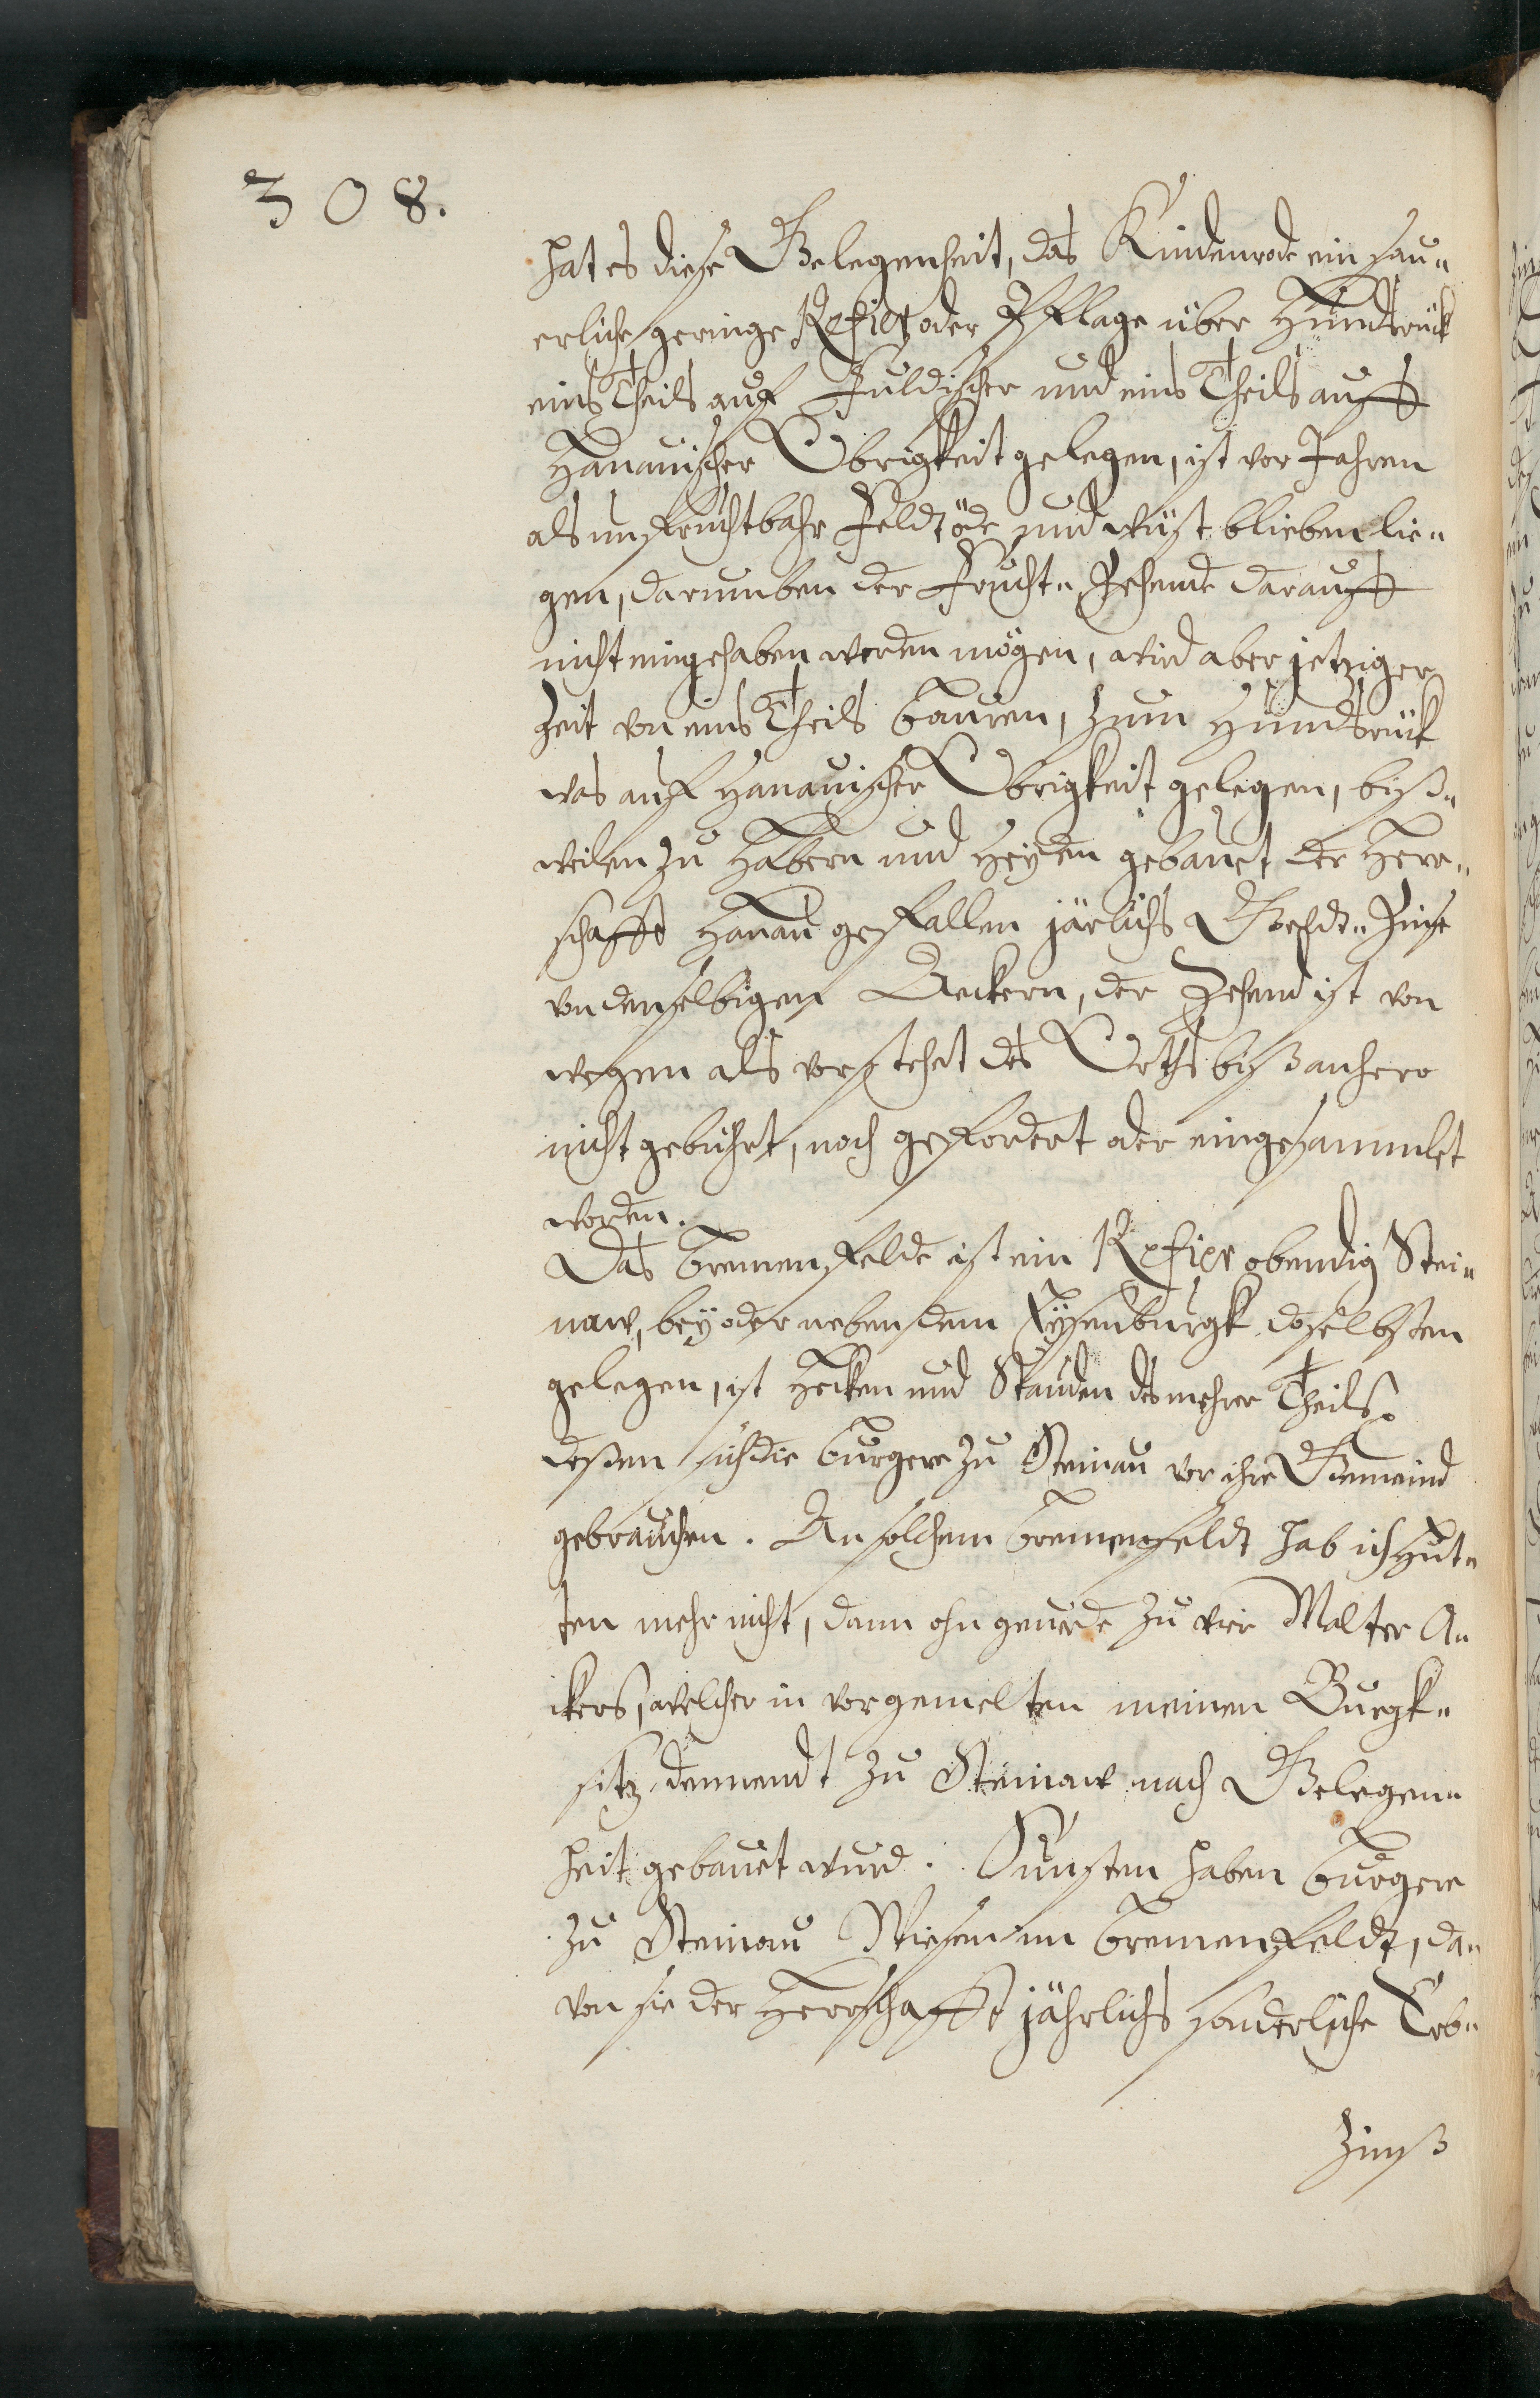 308.
hat es diese Gelegenheit, das Kindenrode ein sau„
erliche geringe Refier oder Pflage über Hundtsrück
eins Theils auf Fuldischer und eins Theils auff
Hanauischer Obrigkeit gelegen, ist vor Jahren
als unfruchtbahr Feldt öde und wüst blieben lie„
gen, darumben der Frucht„Zehende darauff
nicht eingehaben werden mögen, wird aber jetziger
Zeit von eins Theils Bauren, zum Hundtsrück
was auf Hanauischer Obrigkeit gelegen, biß„
weilen zu Habern und Heyden gebauet der Herr„
schafft Hanau gefallen järlichs Geldt„Zinse
von denselbigen Aeckern, der Zehend ist von
wegen als vorstehet des Orths biß anhero
nicht gebührt, noch gefordert oder eingesammlet
worden.
Das Bremenfelde ist ein Refier obendig Stei„
naw, bey oder neben dem Eysenburgk doselbsten
gelegen, ist Hecken und Stauden des mehrer Theils,
deßen sich die Burgere zu Steinau vor ihre Gemeind
gebrauchen. An solchem Bremenfeldt hab ich Hut„
ten mehr nicht, dann ohn geuerde zu vier Malter A„
ckers, welcher in vorgemelten meinen Burgk„
sitz dennendt zu Steinaw nach Gelegen„
heit gebauet wurd. Sunsten haben Burgere
zu Steinau Wiesen im Bremenfeldt, da„
von sie der Herrschafft jährlichs sonderliche Erb„
Zinß